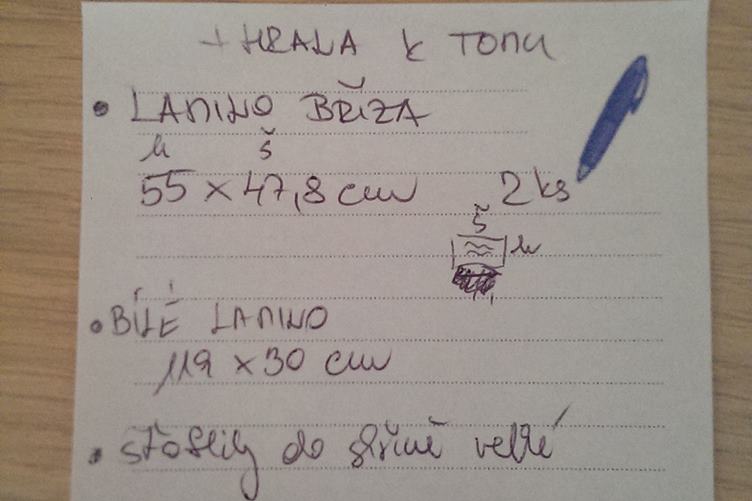 + HRANA K TOMU
• LAMINO BŘÍZA
h š
55 x 47,8 cm 2 ks
š
h
• BÍLÉ LAMINO
119 x 30 cm
• šťoftlíky do skříně velké